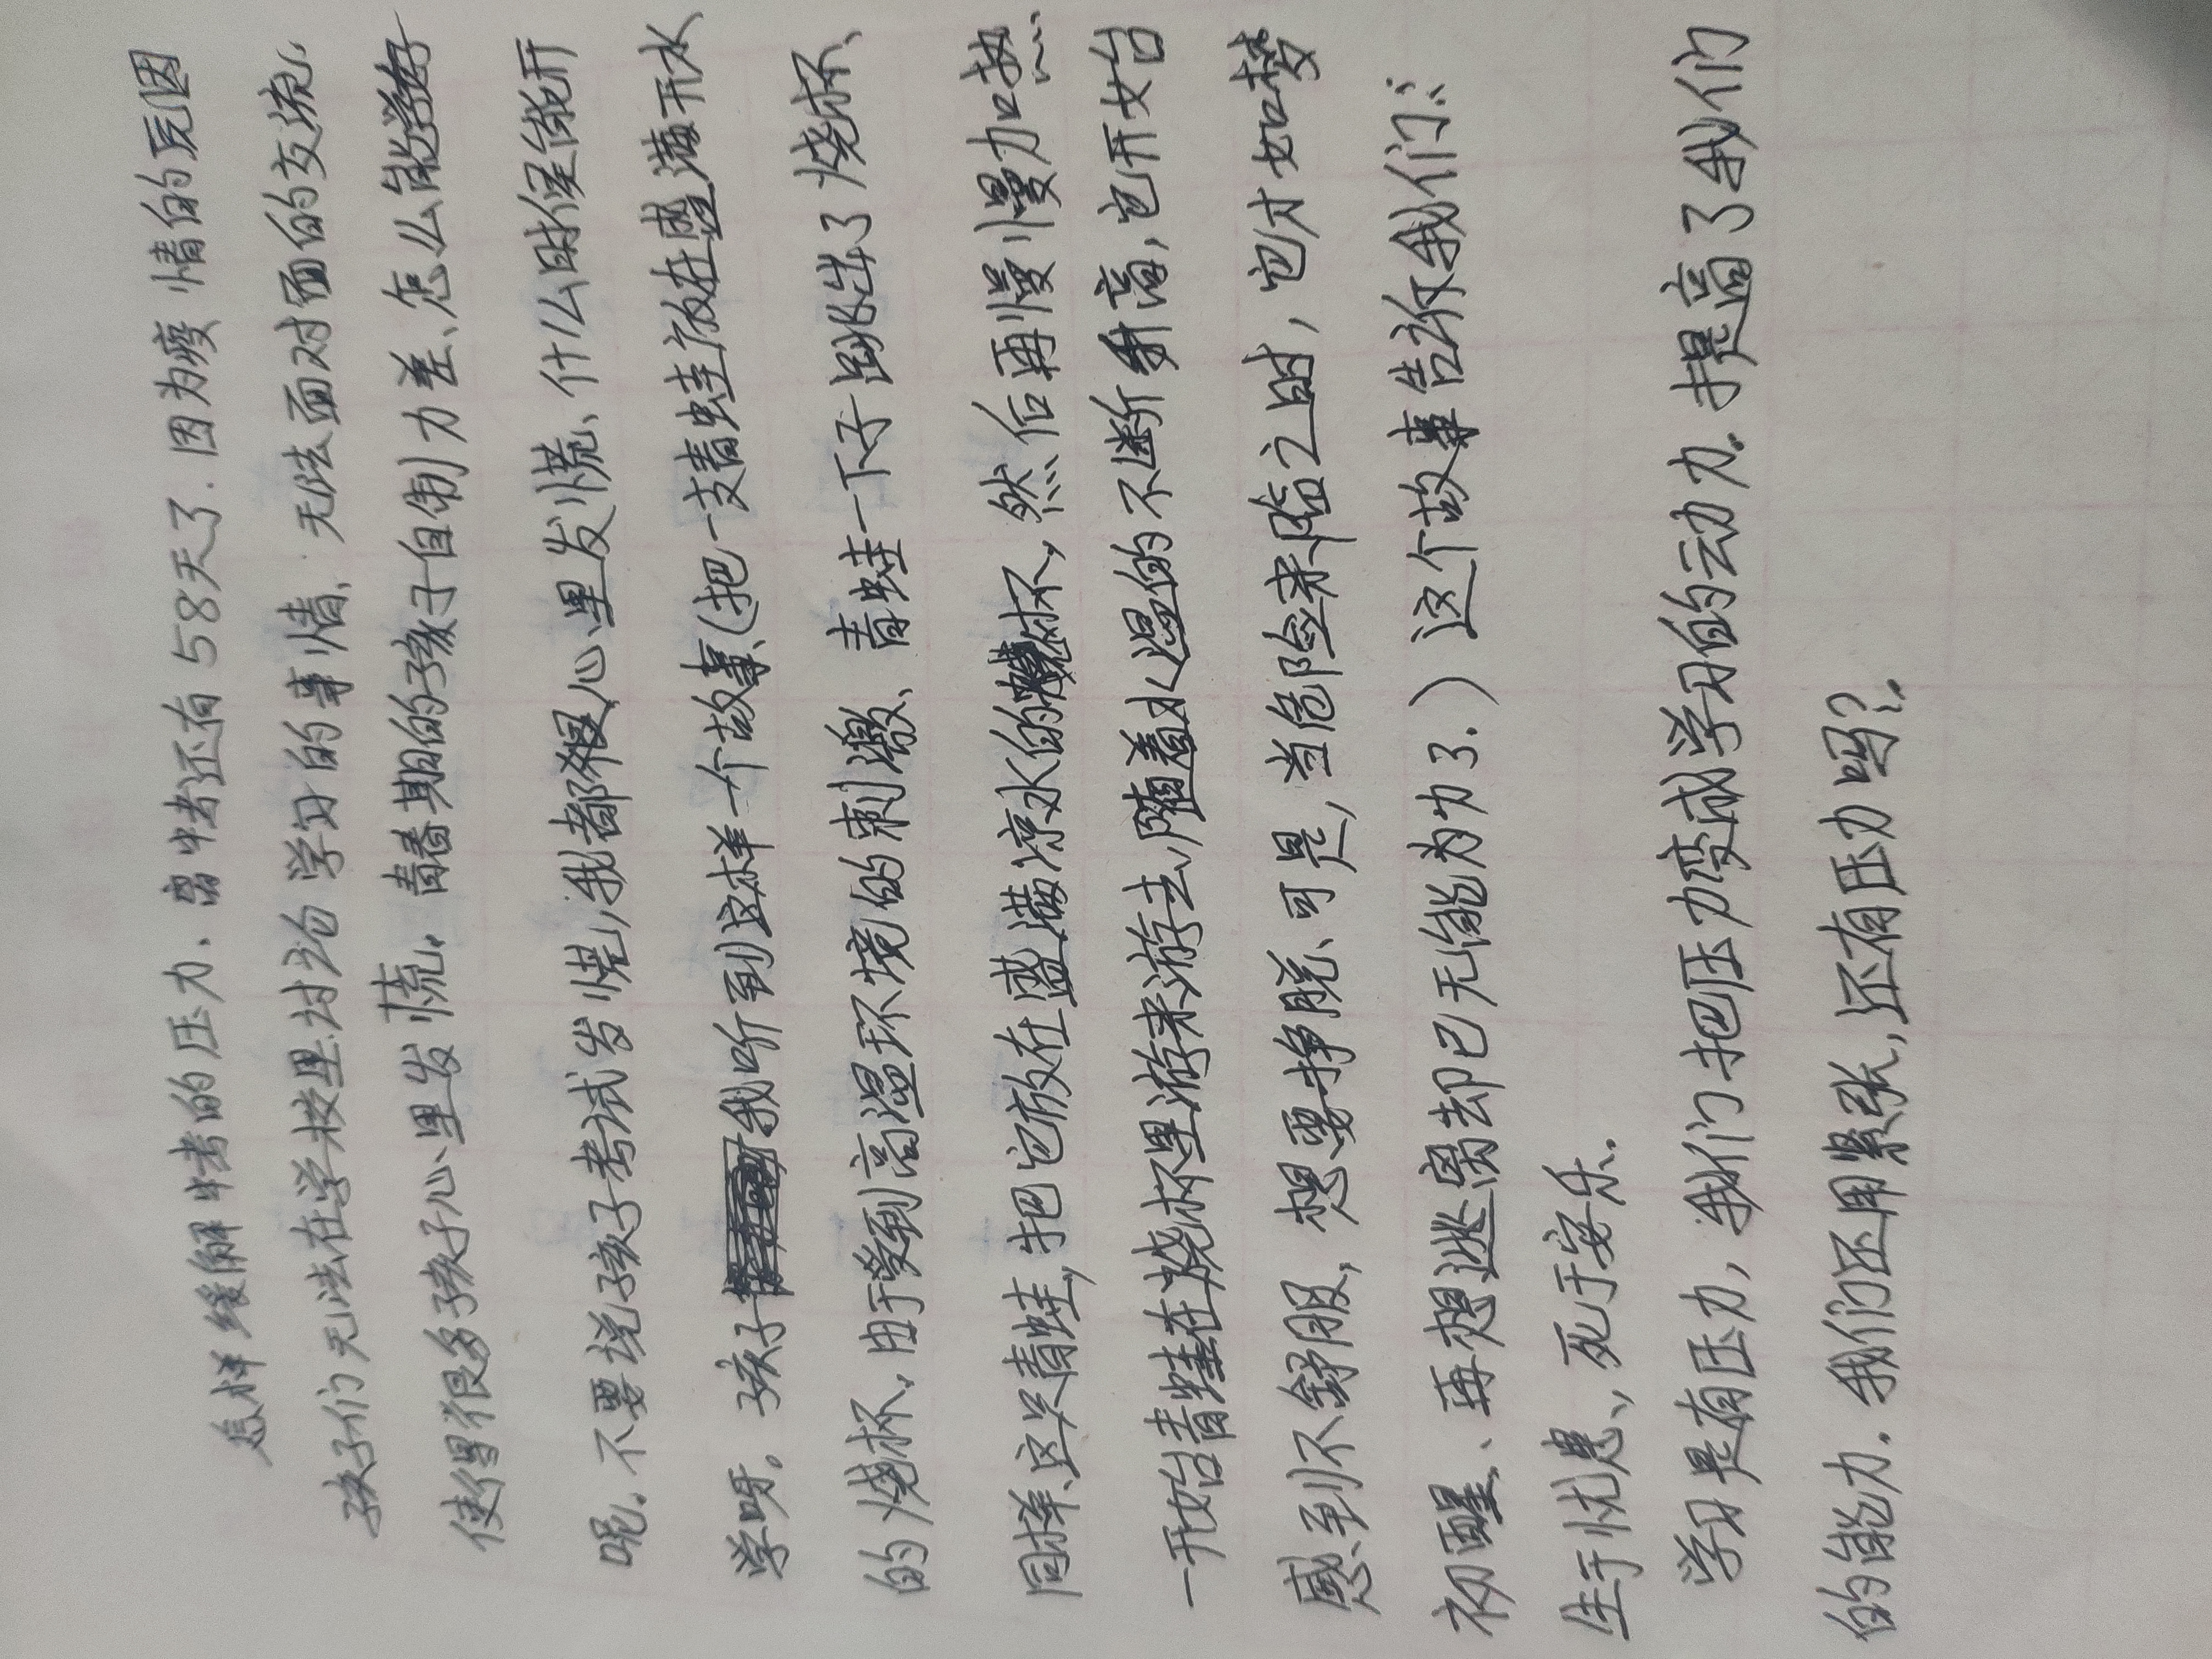 怎样缓解中考的压力、离中考还有58天了.因为疫情的原因
孩子们无法在学校里讨论学习的事情、无法面对面的交流,
使得很多孩子心里发慌。青春期的孩子自制力差、怎么能学好
呢。不要说孩子考试发慌,我都很心里发慌、什么时候能开
学呀。孩子我听到这样一个故事、(把一支青蛙放在盛满开水
的烧杯,由于受到高温环境的刺激、青蛙一下子跳出了烧杯、
同样、这只青蛙,把它放在盛满凉水的烧杯,然后再慢慢加热
一开始青蛙在烧杯里游来游去,随着水温的不断升高,它开始
感到不舒服,想要挣脱、可是,当危险来临之时,它才如梦
初醒、再想逃离去却已无能为力了.)这个故事告诉我们:
生于忧患、死于安乐.
学习是有压力,我们把压力变成学习的动力.提高了我们
的能力.我们还用紧张,还有压力吗?.